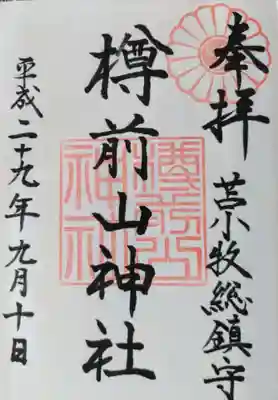 奉拝
苫小牧総鎮守
樽前山神社
平成二十九年九月十日